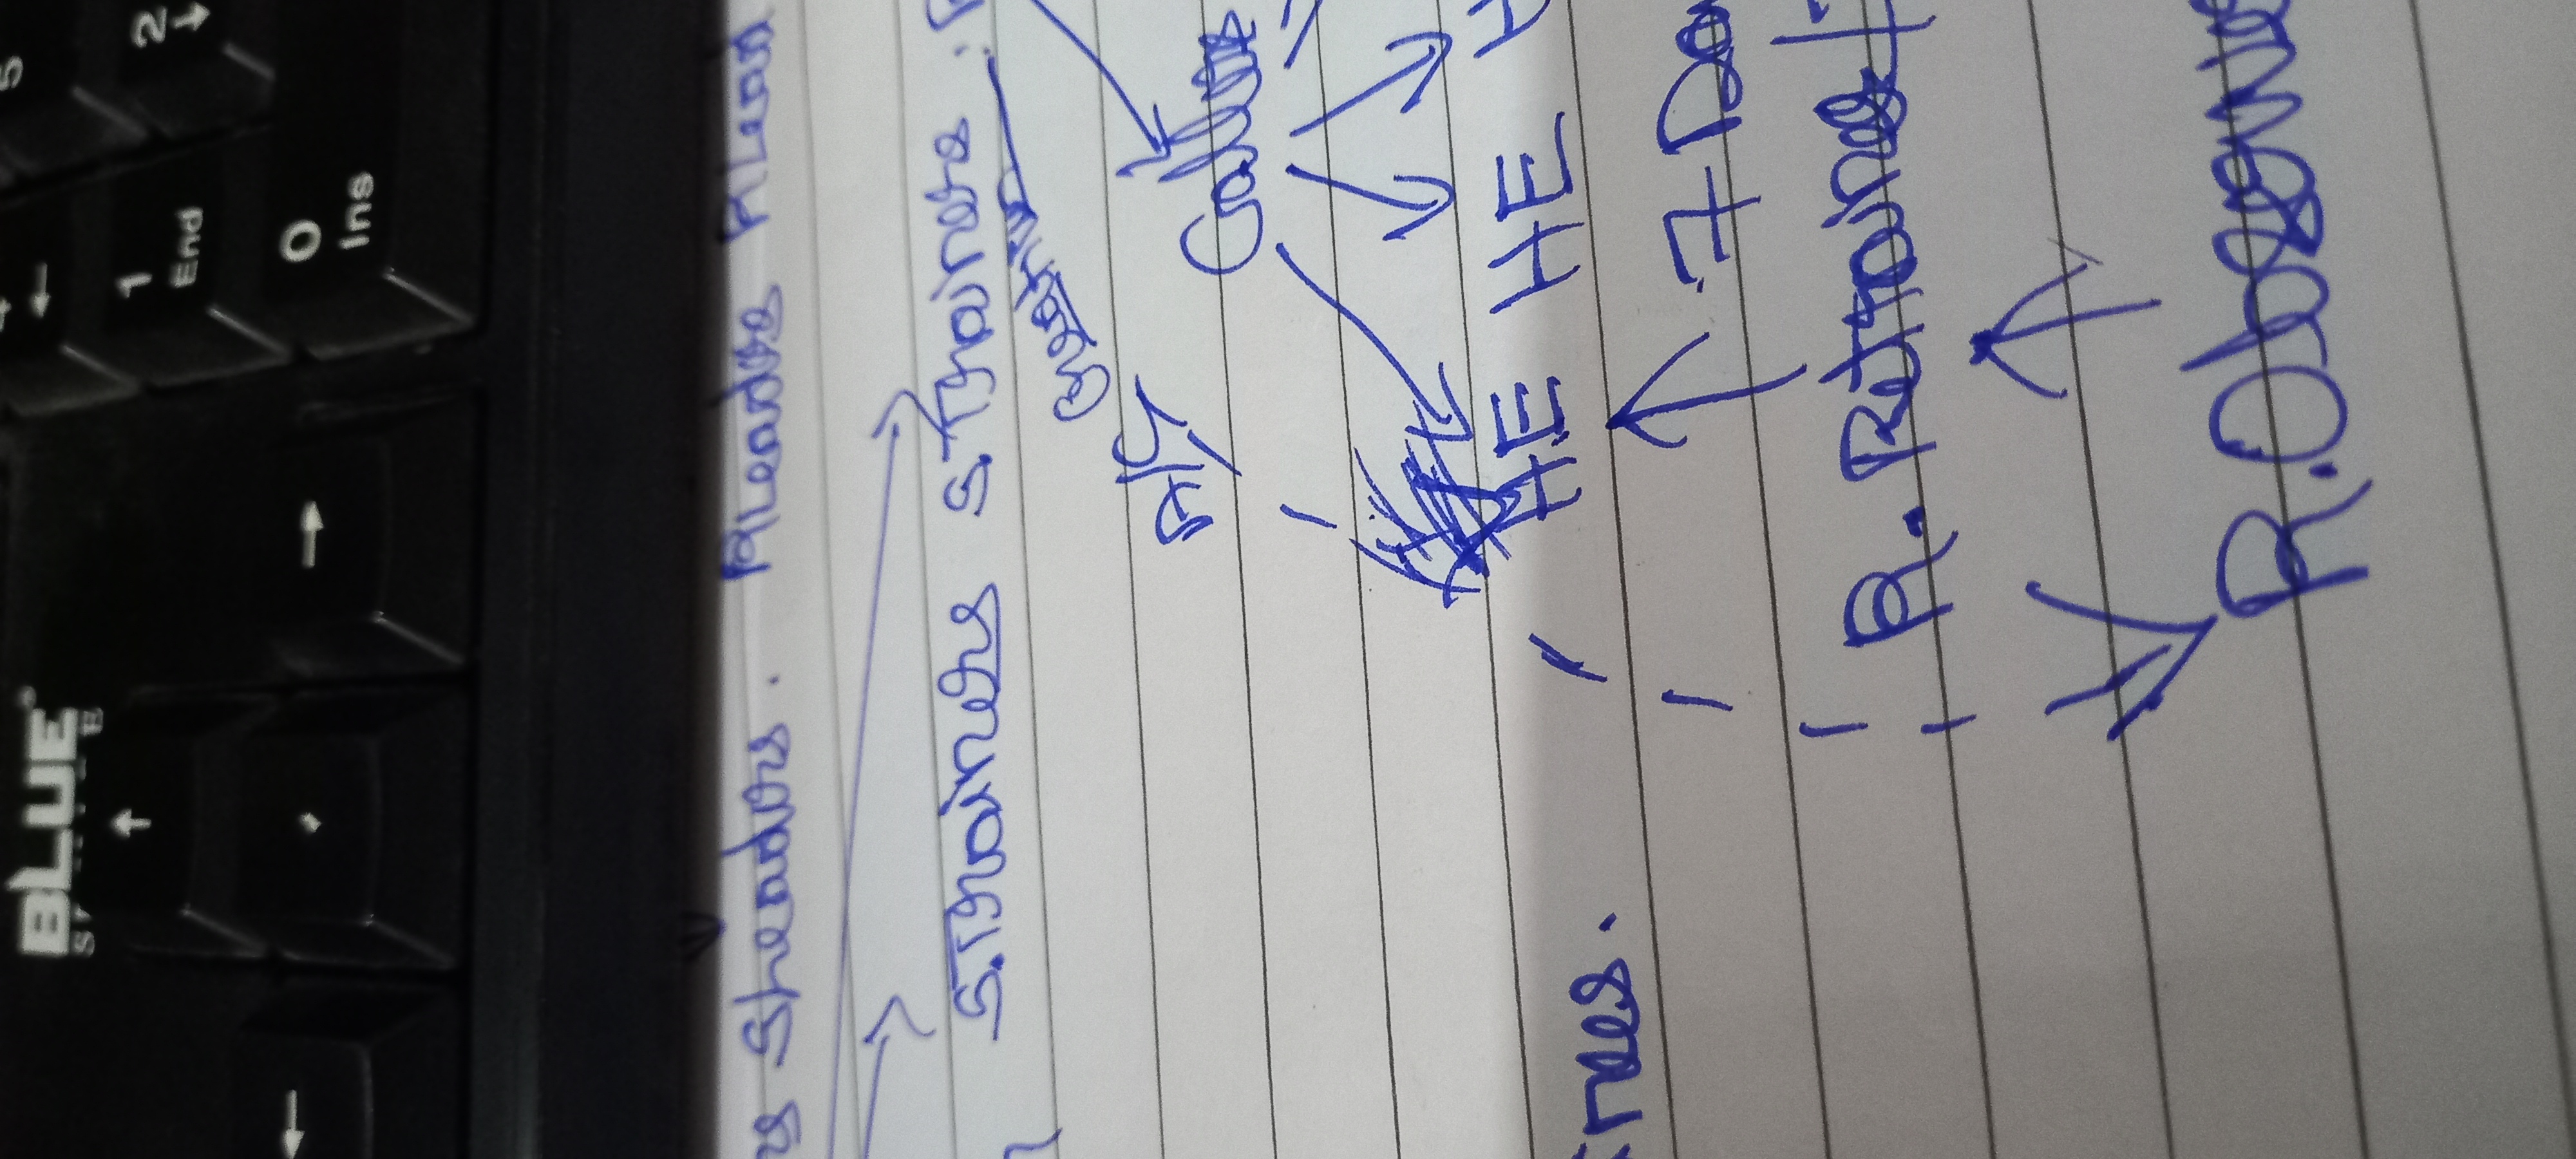 BLUE
↑
5
←
1 End
2 ↓
← →
0 Ins
rs SLeaders. RLeaders RLead
S.Trainers S.Trainers
A/C Creation
Callers
H.E HE H
inees.
7 Da
R. Retrainer/
R.Observe